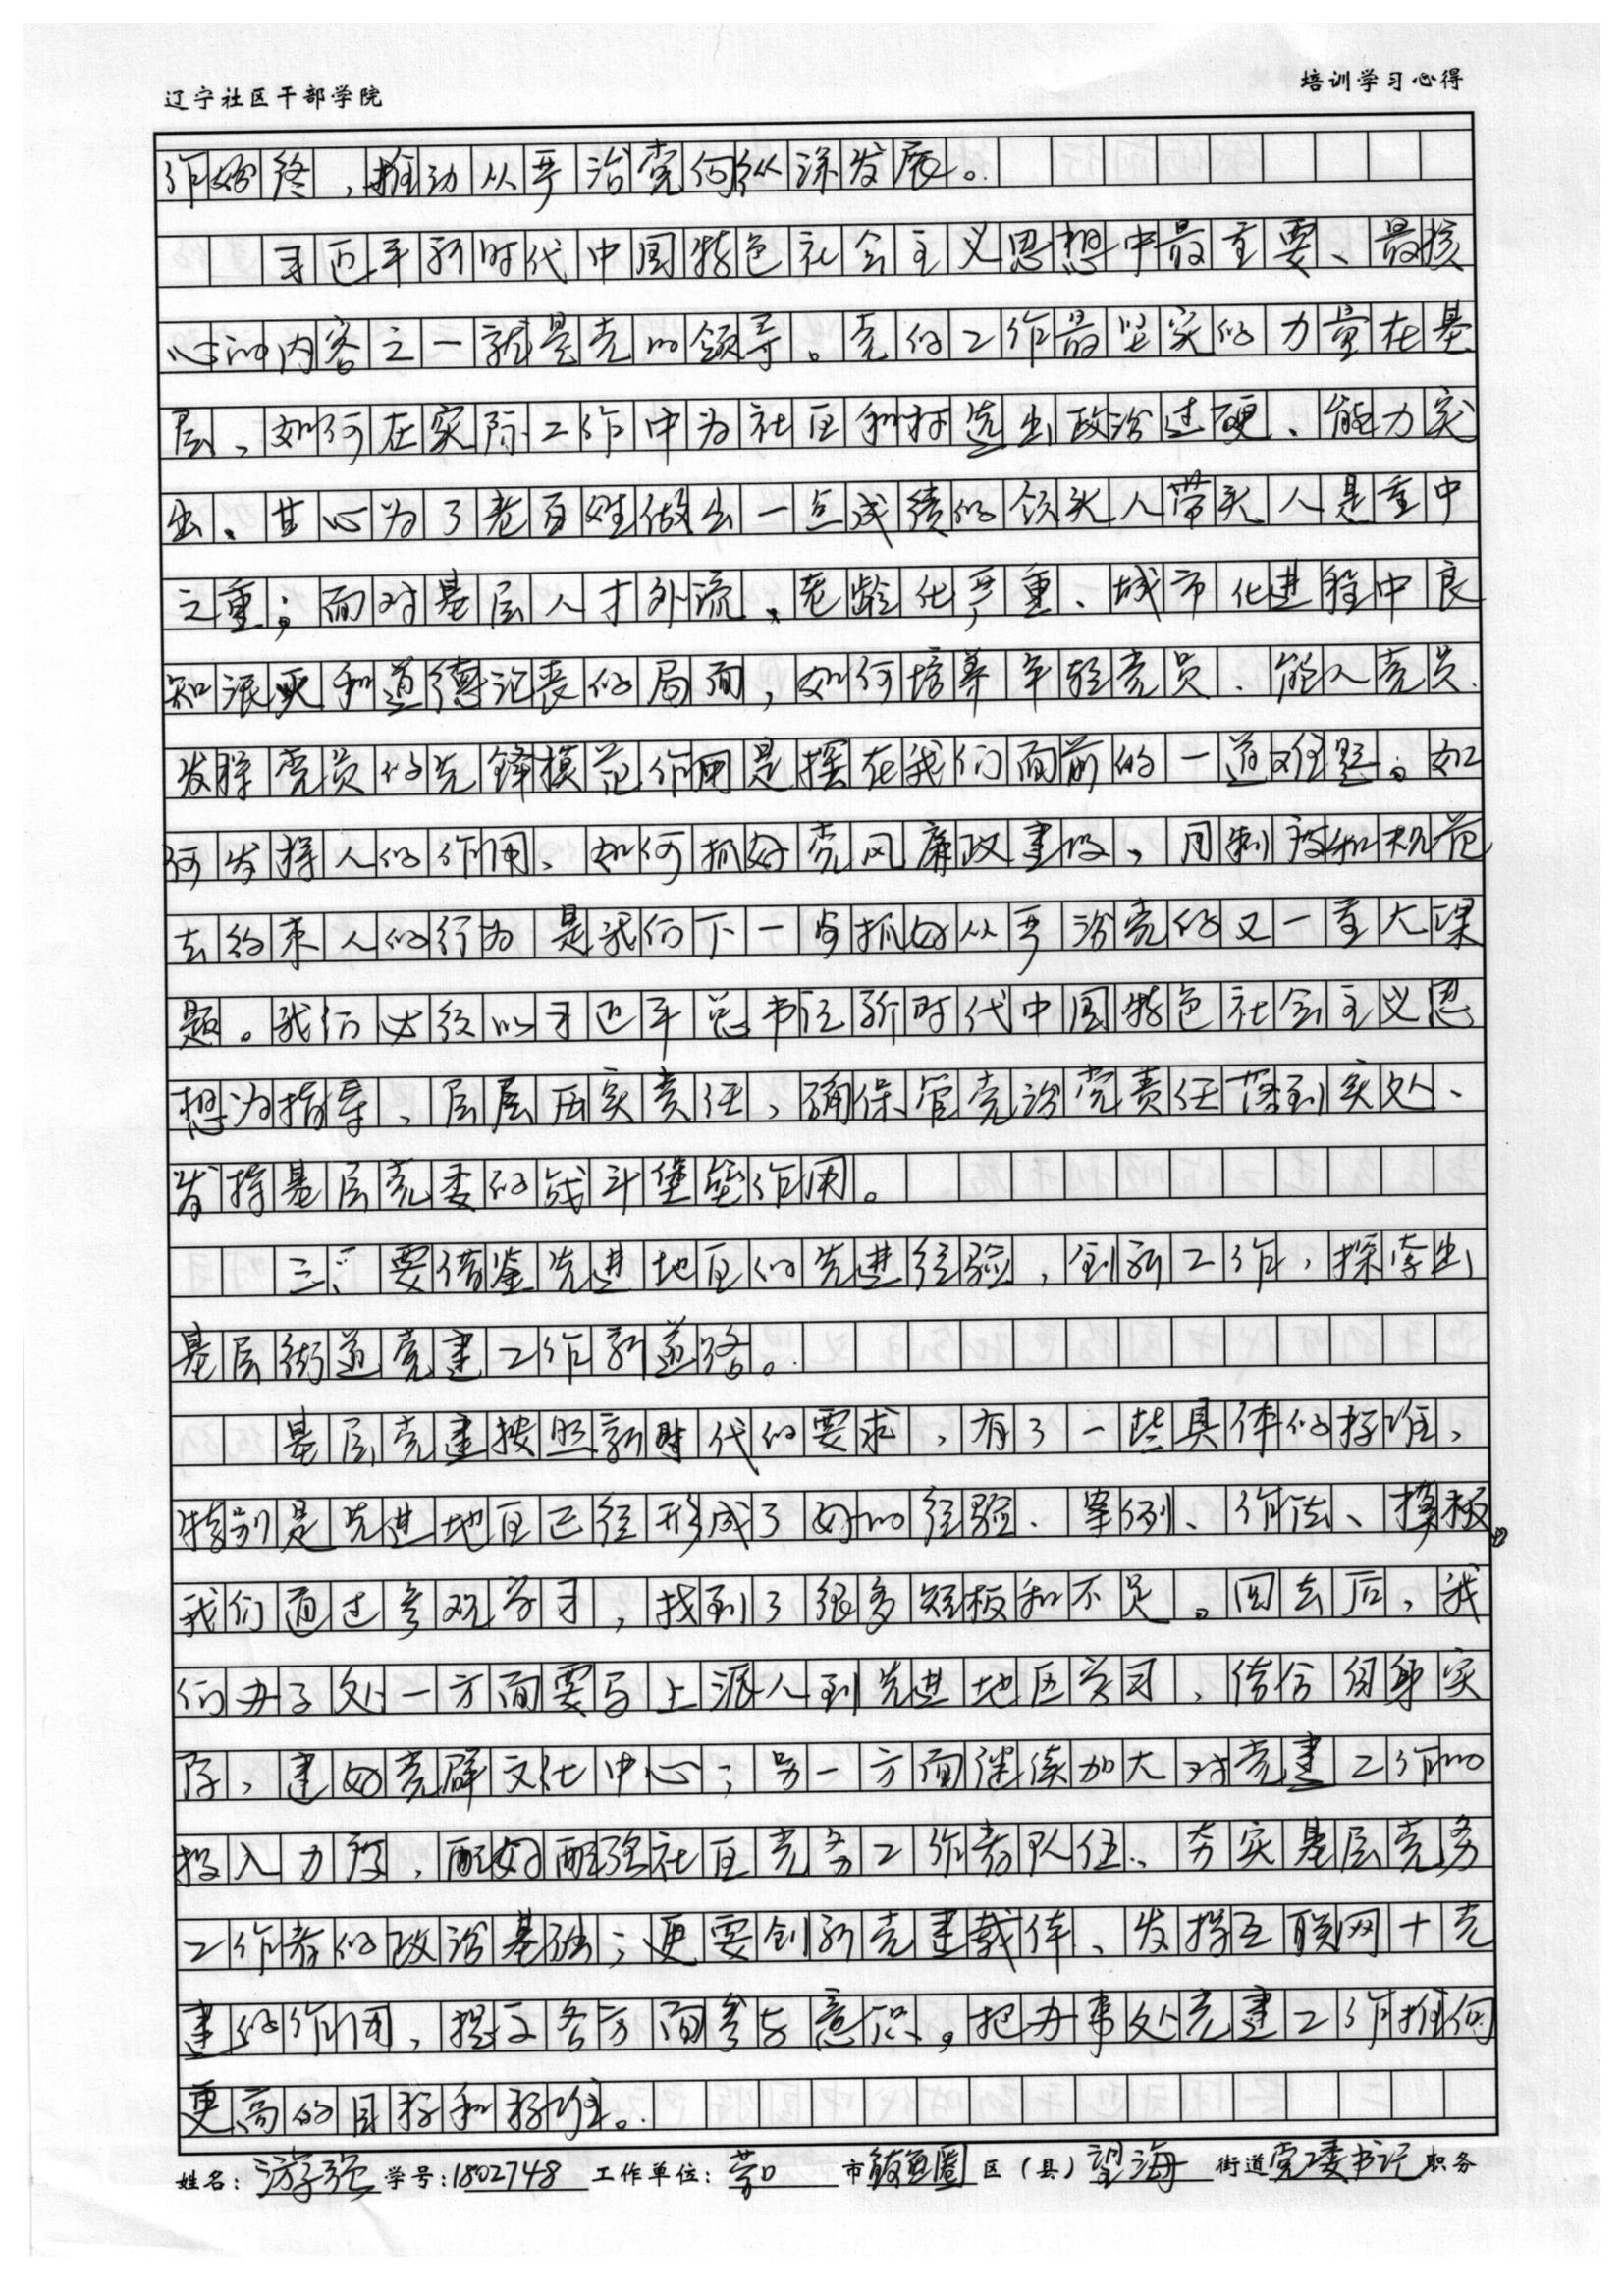 辽宁社区干部学院
培训学习心得
作始终，推动从严治党向纵深发展。
习近平新时代中国特色社会主义思想中最重要、最核
心的内容之一就是党的领导。党的工作最坚实的力量在基
层、如何在实际工作中为社区和村选出政治过硬、能力突
出、甘心为了老百姓做出一点成绩的领头人带头人是重中
之重；面对基层人才外流、老龄化严重、城市化进程中良
知泯灭和道德沦丧的局面，如何培养年轻党员、能人党员、
发挥党员的先锋模范作用是摆在我们面前的一道难题。如
何发挥人的作用、如何抓好党风廉政建设、用制度和规范
去约束人的行为是我们下一步抓好从严治党的又一重大课
题。我们必须以习近平总书记新时代中国特色社会主义思
想为指导、层层压实责任、确保管党治党责任落到实处、
发挥基层党委的战斗堡垒作用。
三、要借鉴先进地区的先进经验，创新工作，探索出
基层街道党建工作新道路。
基层党建按照新时代的要求，有了一些具体的标准，
特别是先进地区已经形成了好的经验、案例、作法、模板。
我们通过参观学习，找到了很多短板和不足。回去后，我
们办事处一方面要马上派人到先进地区学习，结合自身实
际，建好党群文化中心；另一方面继续加大对党建工作的
投入力度，配好配强社区党务工作者队伍、夯实基层党务
工作者的政治基础；更要创新党建载体、发挥互联网十党
建的作用，提高各方面参与意识，把办事处党建工作推向
更高的目标和标准。
姓名：游强 学号：1802748 工作单位：营口 市鲅鱼圈 区（县）望海 街道党工委书记 职务